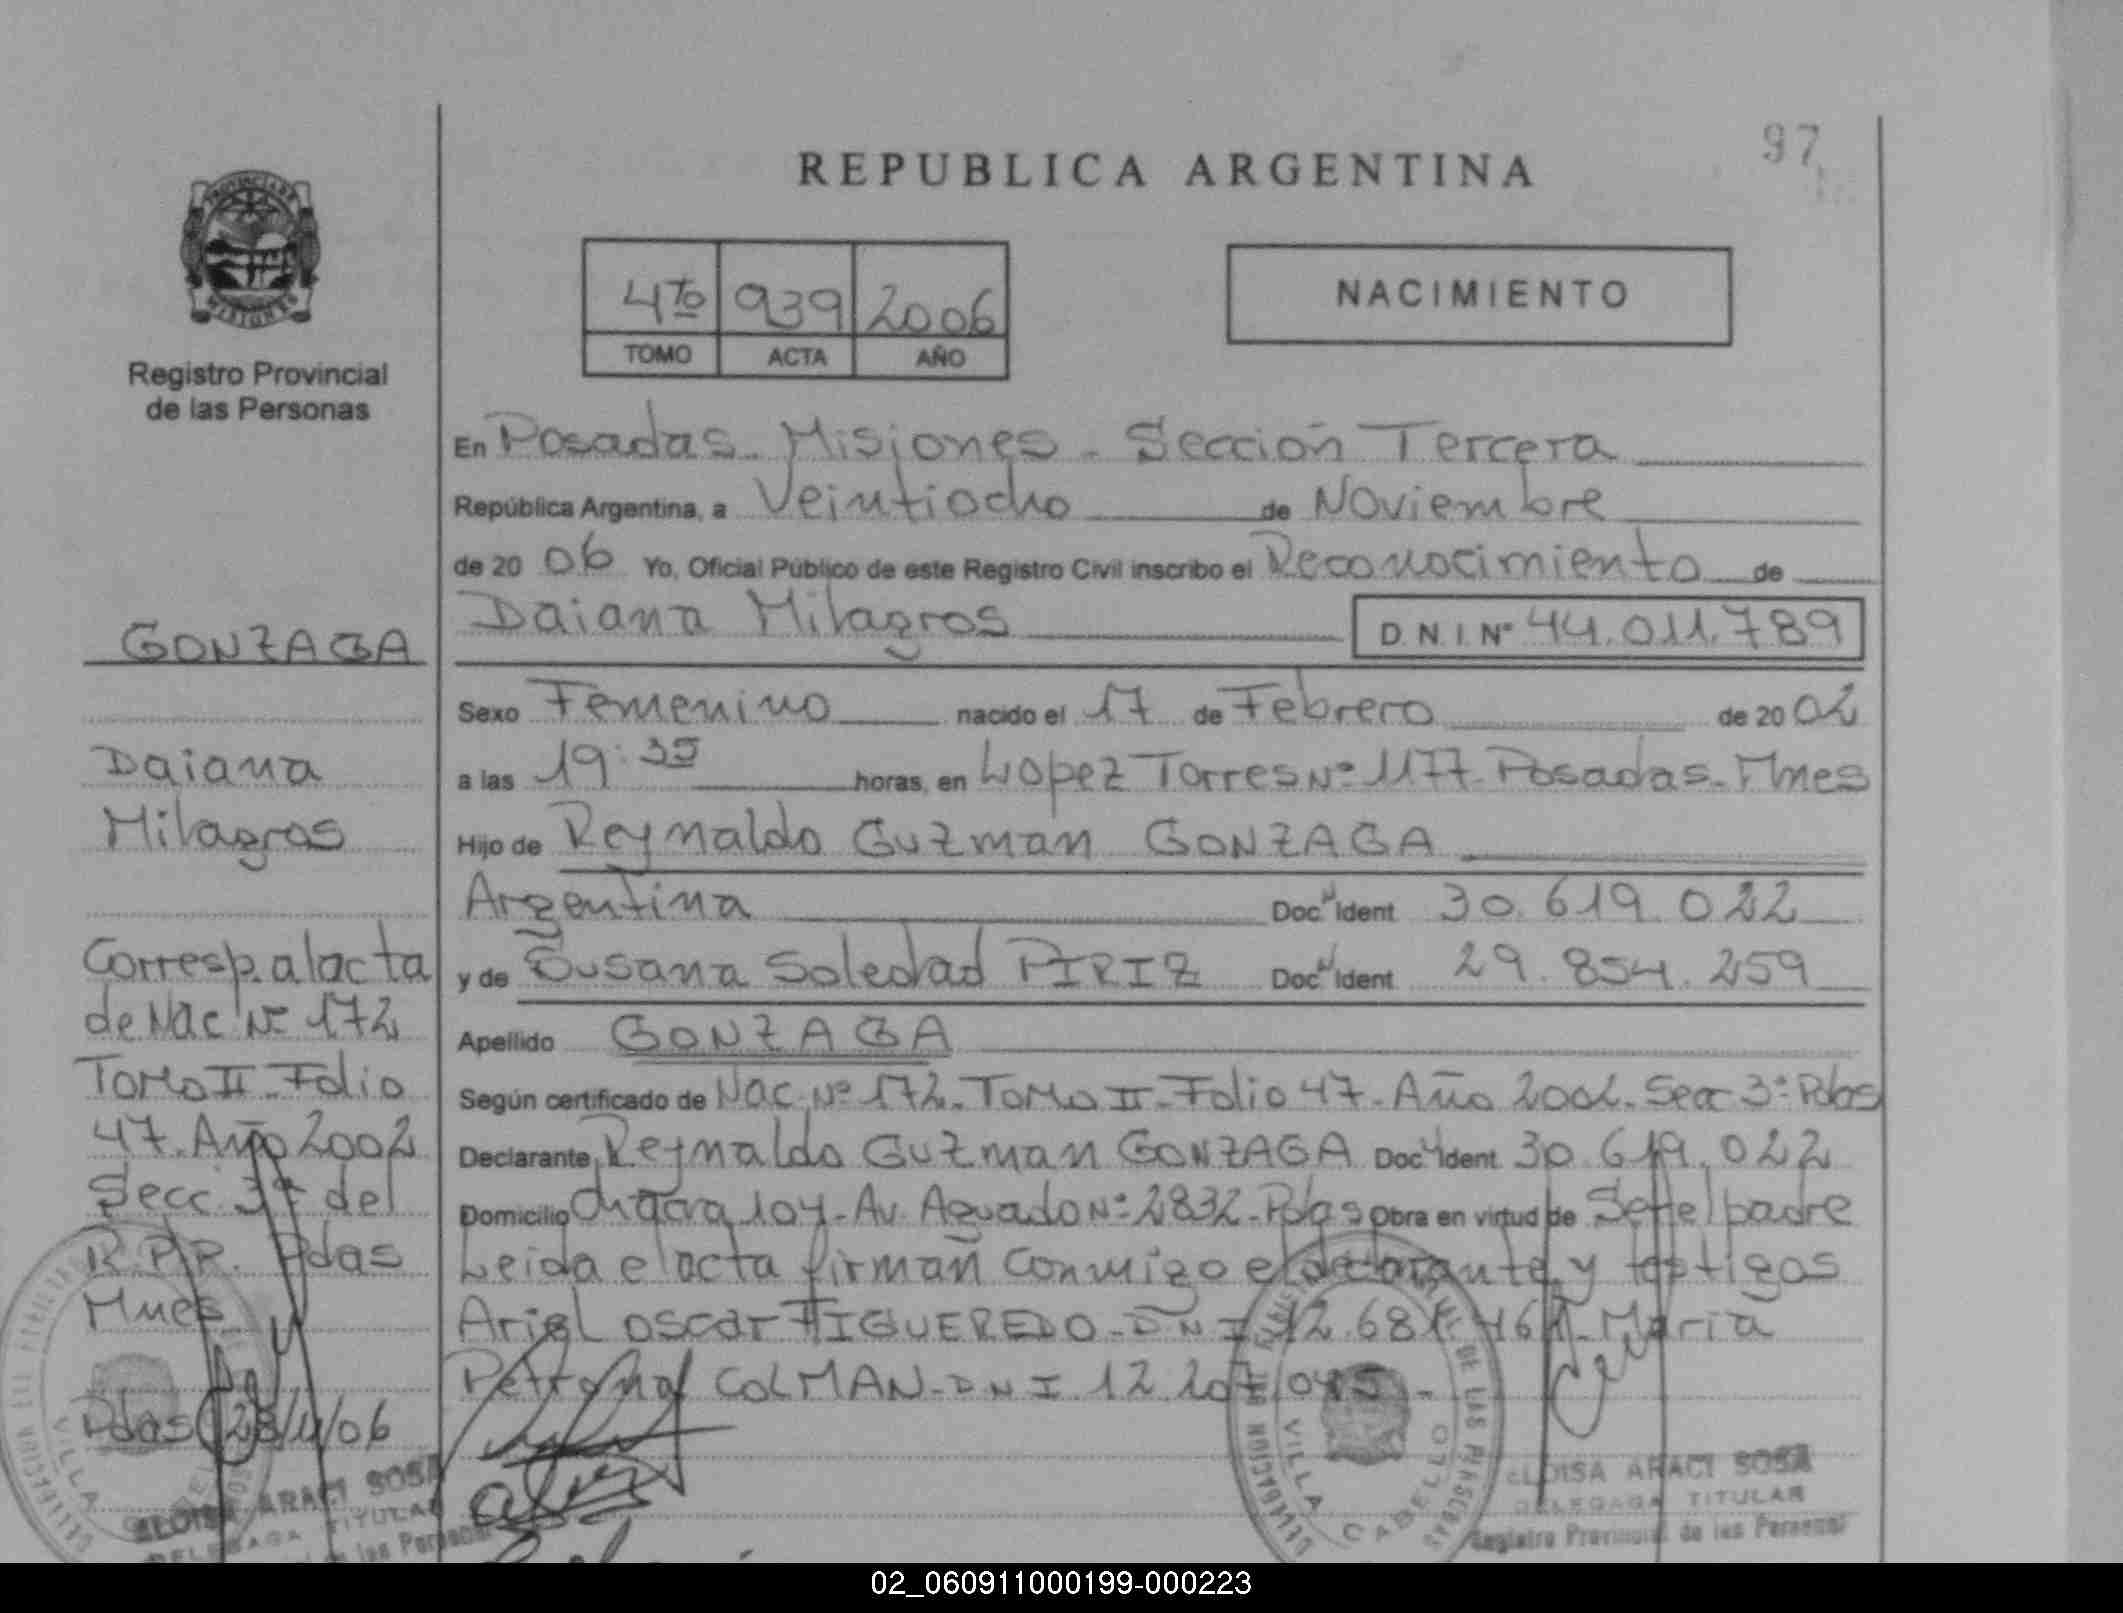 97
REPUBLICA ARGENTINA
PROVINCIA DE
MISIONES
Registro Provincial
de las Personas
4to 939 2006
TOMO ACTA AÑO
NACIMIENTO
En Posadas. Misiones - Sección Tercera
República Argentina, a Veintiocho de Noviembre
de 20 06 Yo, Oficial Público de este Registro Civil inscribo el Reconocimiento de
Daiana Milagros D.N.I. Nº 44.011.789
Sexo Femenino nacido el 17 de Febrero de 20 02
a las 19:35 horas, en Lopez Torres Nº 1177 Posadas. Mnes
Hijo de Reynaldo Guzman GONZAGA
Argentina Doc Ident 30.619.022
y de Susana Soledad PIRIZ Doc Ident 29.854.259
Apellido GONZAGA
Según certificado de Nac. Nº 172. Tomo II. Folio 47. Año 2002. Secc 3ª Pdas
Declarante Reynaldo Guzman GONZAGA Doc Ident 30.619.022
Domicilio Chacra 104. Av. Aguado Nº 2832. Pdas Obra en virtud de Ser el padre
Leida el acta firman conmigo el declarante y testigos
Ariel Oscar FIGUEREDO. DNI 12.68 Maria
COLMAN. DNI 12.207.045.
GONZAGA
Daiana
Milagros
Corresp. al acta
de Nac Nº 172
Tomo II. Folio
47. Año 2002
Secc. 3ª del
R.P.P. Pdas
Mnes
Pdas 28/11/06
VILLA CABELLO
ELOISA ARACI SOSA
DELEGADA TITULAR
Registro Provincial de las Personas
VILLA CABELLO
ELOISA ARACI SOSA
DELEGADA TITULAR
de las Personas
02_060911000199-000223